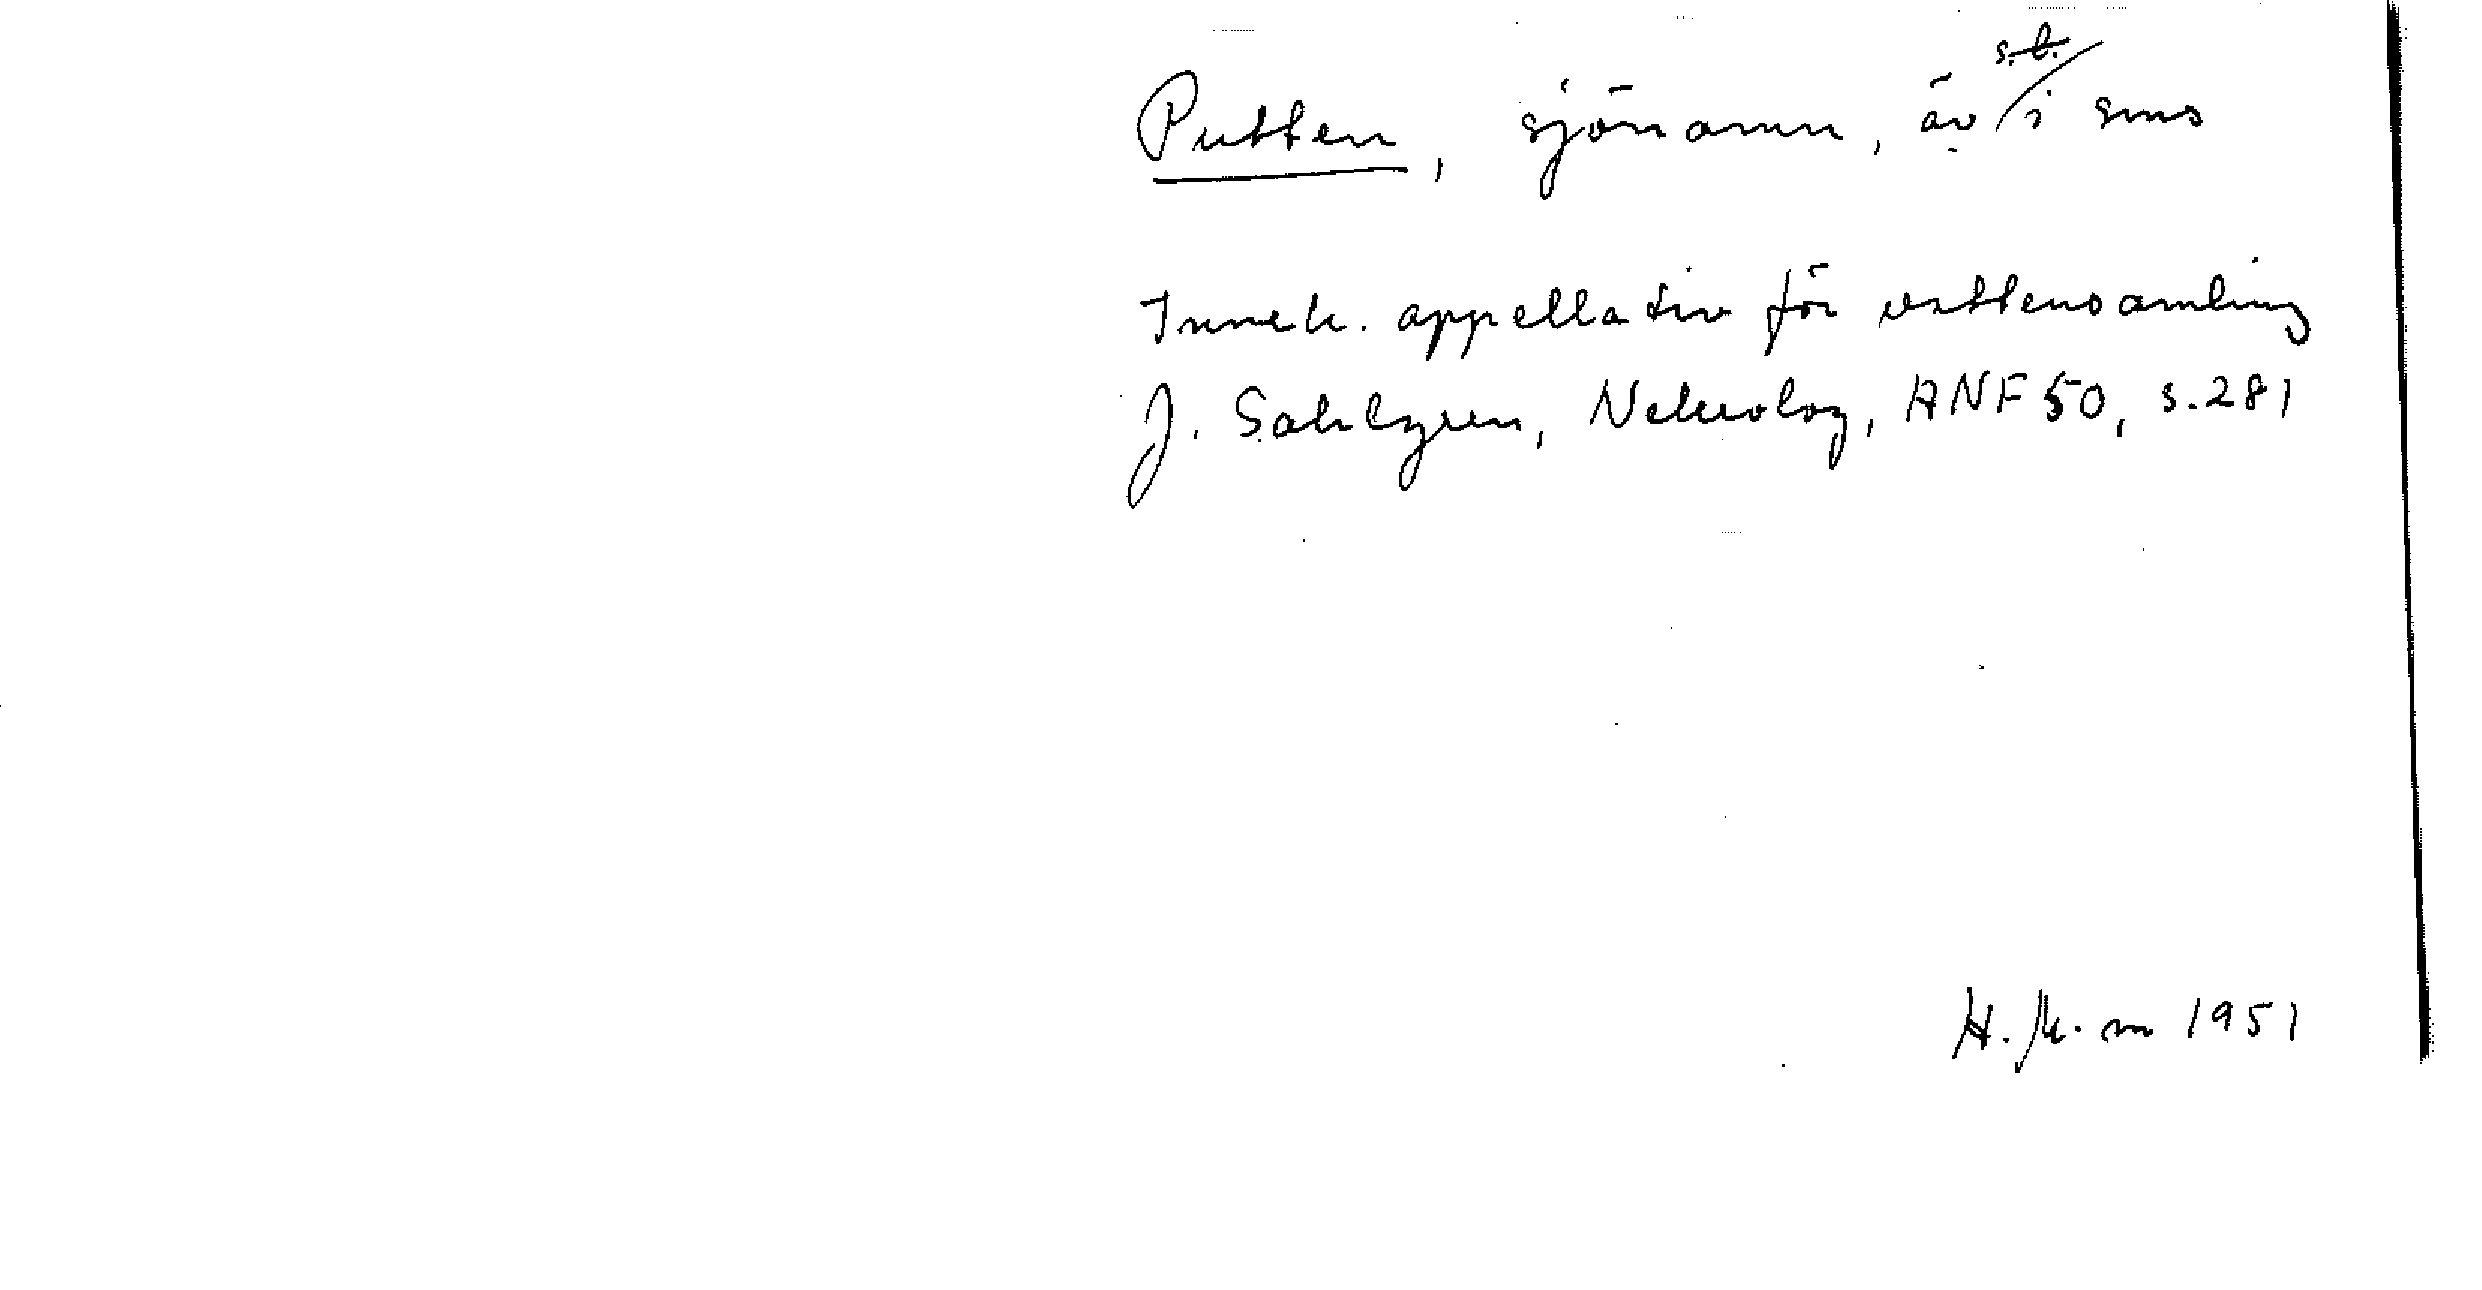 Putten, sjönamn, äv s.l. i sms
Inneh. appellativ för vattensamling
J. Sahlgren, Nekrolog, ANF 50, s. 281
H. 1951